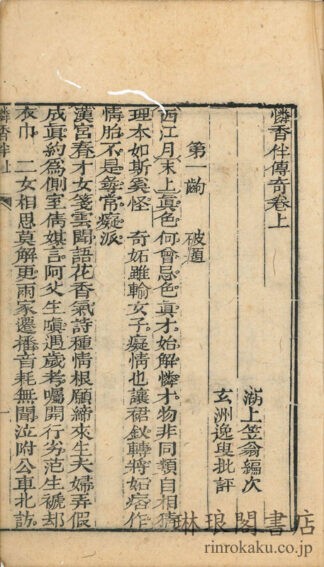 憐香伴傳奇卷上
湖上笠翁編次
玄洲逸叟批評
第一齣 破題
西江月末上眞色何曾忌色眞才始解憐才物非同類自相猜
理本如斯奚怪 奇妬雖輸女子癡情也讓裙釵轉將妬痞作
情胎不是尋常癡派
漢宮春才女箋雲聞語花香氣詩種情根願締來生夫婦弄假
成眞約爲側室倩媒言阿父生嗔遇歲考囑開行劣范生褫却
衣巾 二女相思莫解更兩家遷播音耗無聞泣附公車北訪
憐香伴上
一
琳琅閣書店
rinrokaku.co.jp